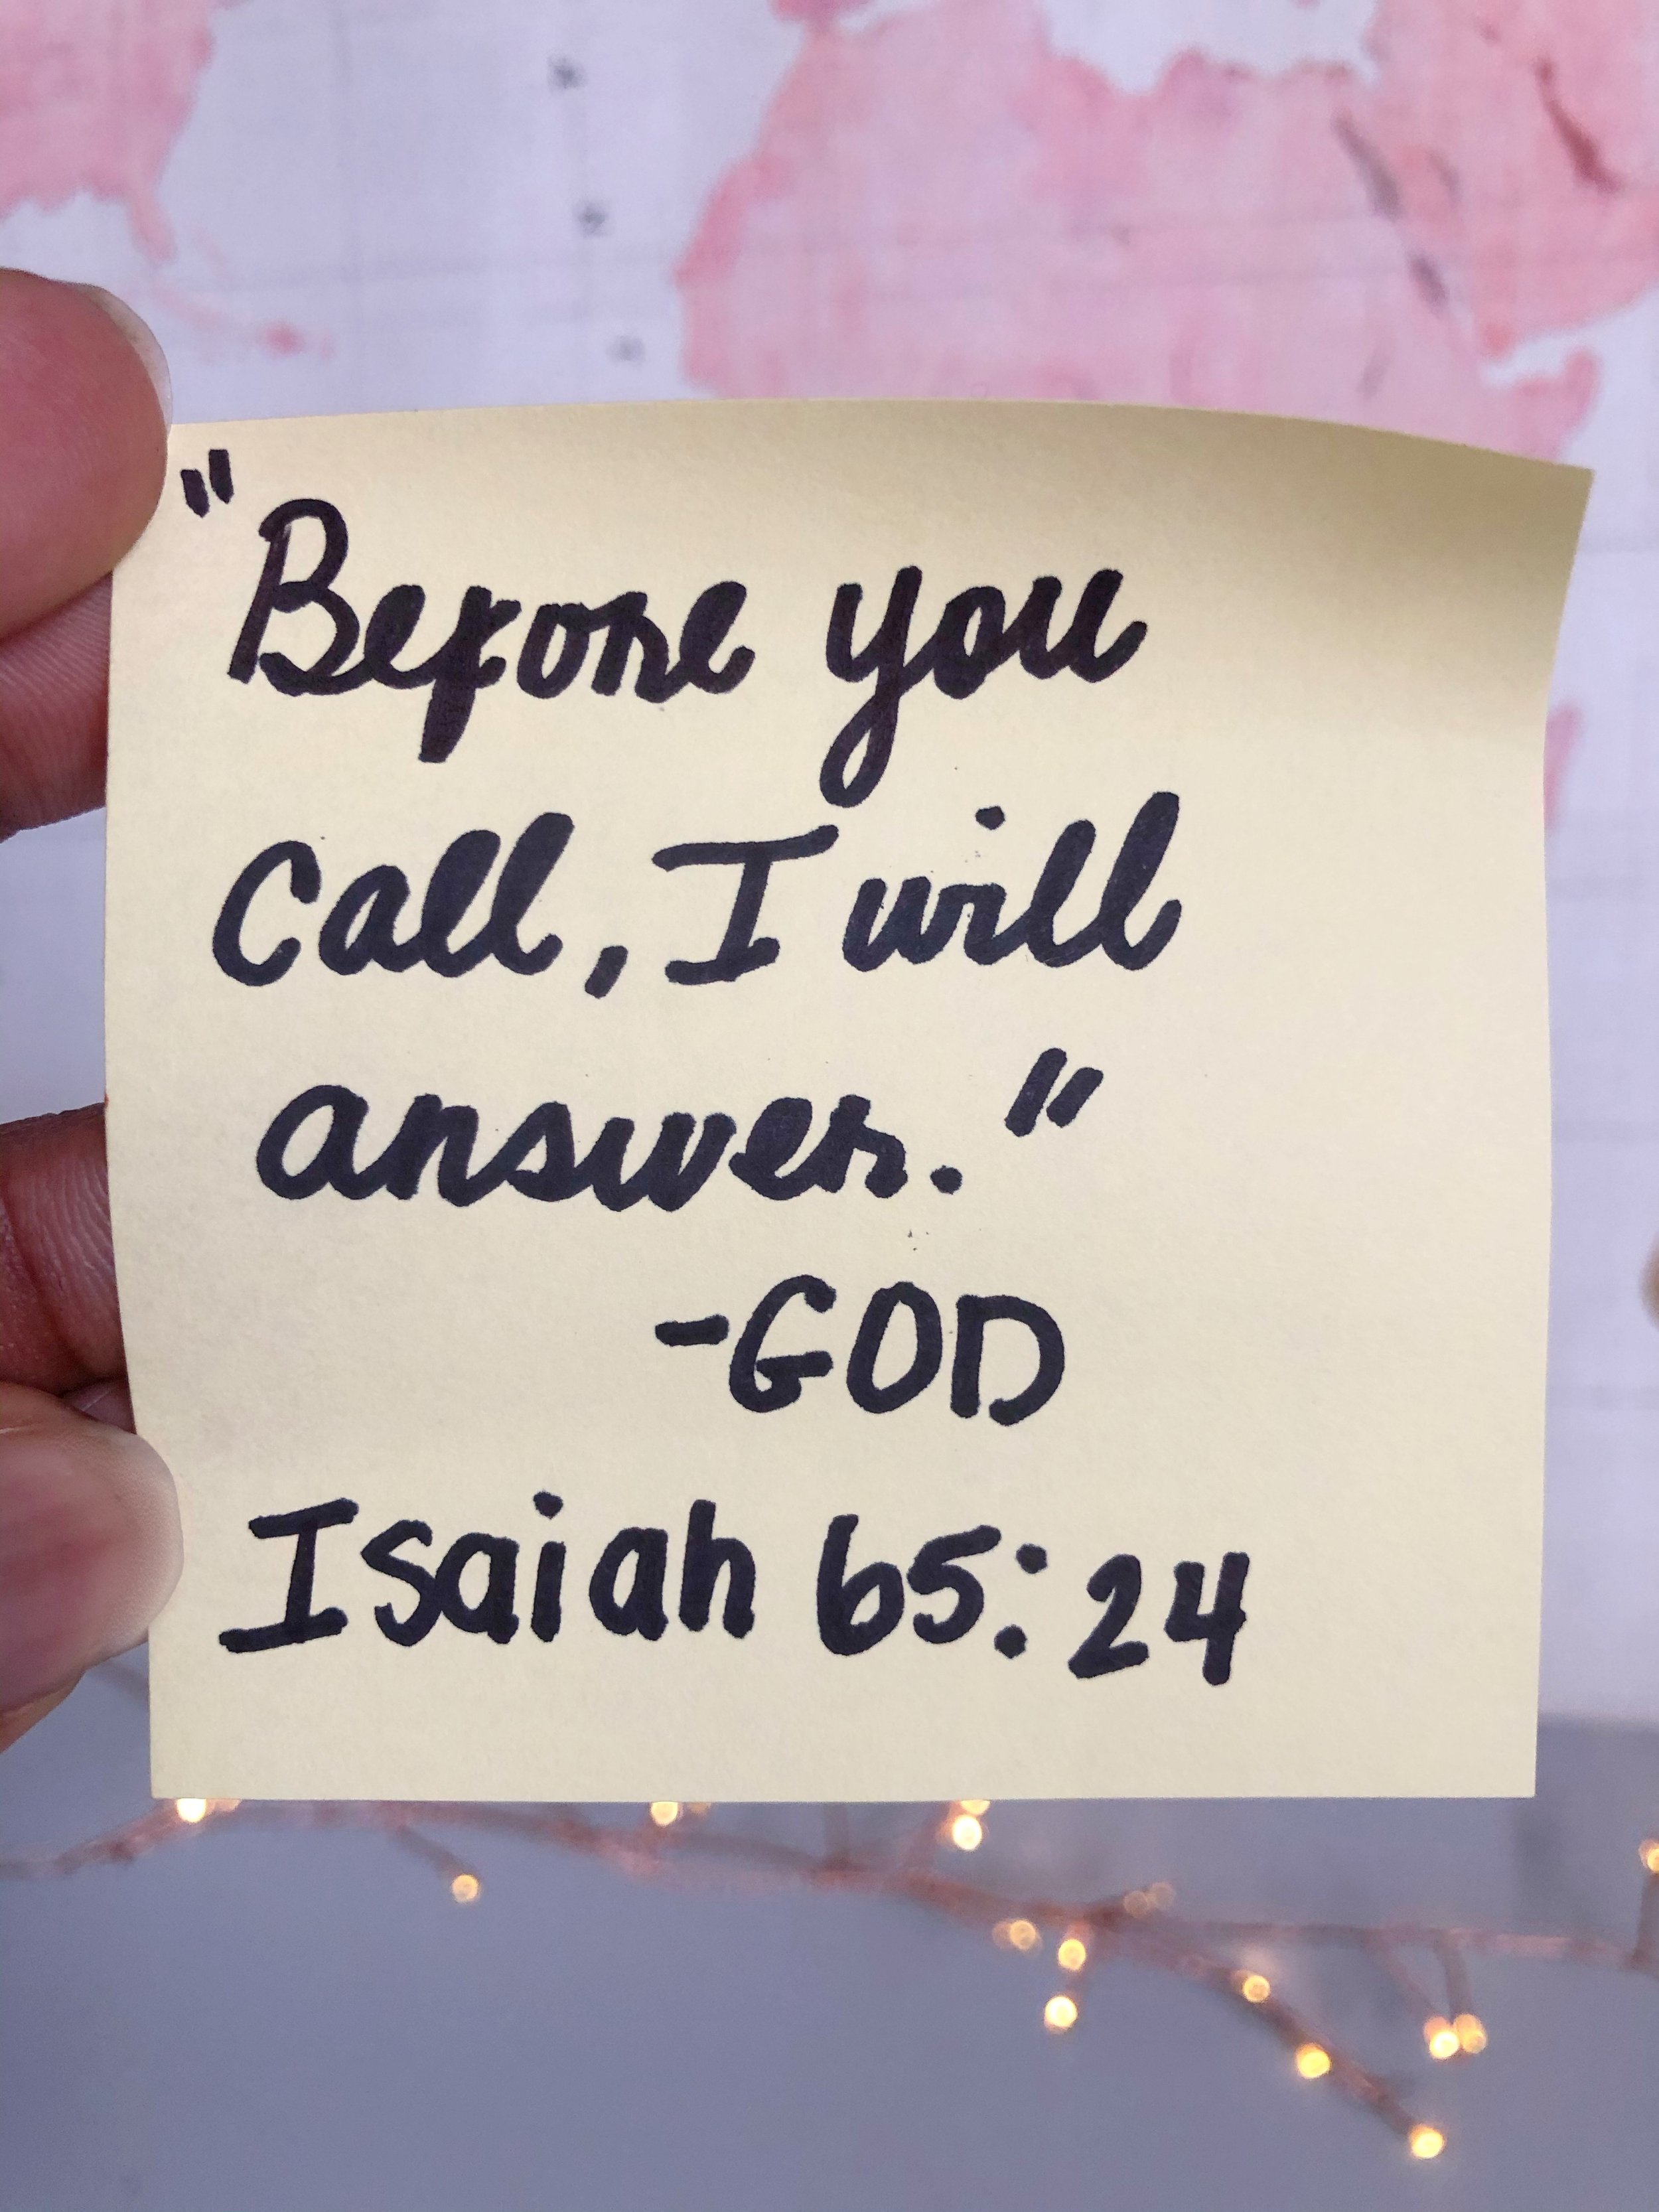 "Before you
Call, I will
answer."
-GOD
Isaiah 65:24